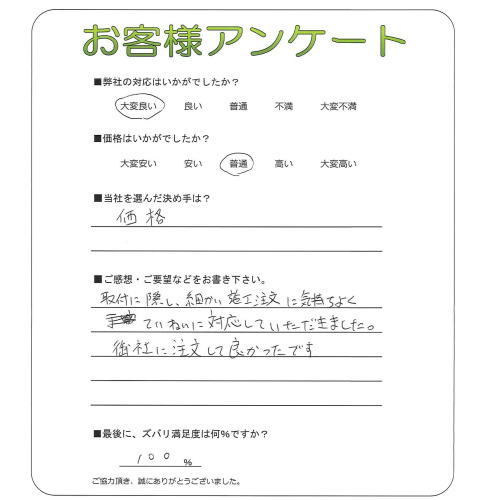 お客様アンケート
■弊社の対応はいかがでしたか？
大変良い 良い 普通 不満 大変不満
■価格はいかがでしたか？
大変安い 安い 普通 高い 大変高い
■当社を選んだ決め手は？
価格
■ご感想・ご要望などをお書き下さい。
取付に隠し、細かい施工注文に気持ちよく
ていねいに対応していただきました。
御社に注文して良かったです
■最後に、ズバリ満足度は何％ですか？
100 %
ご協力頂き、誠にありがとうございました。